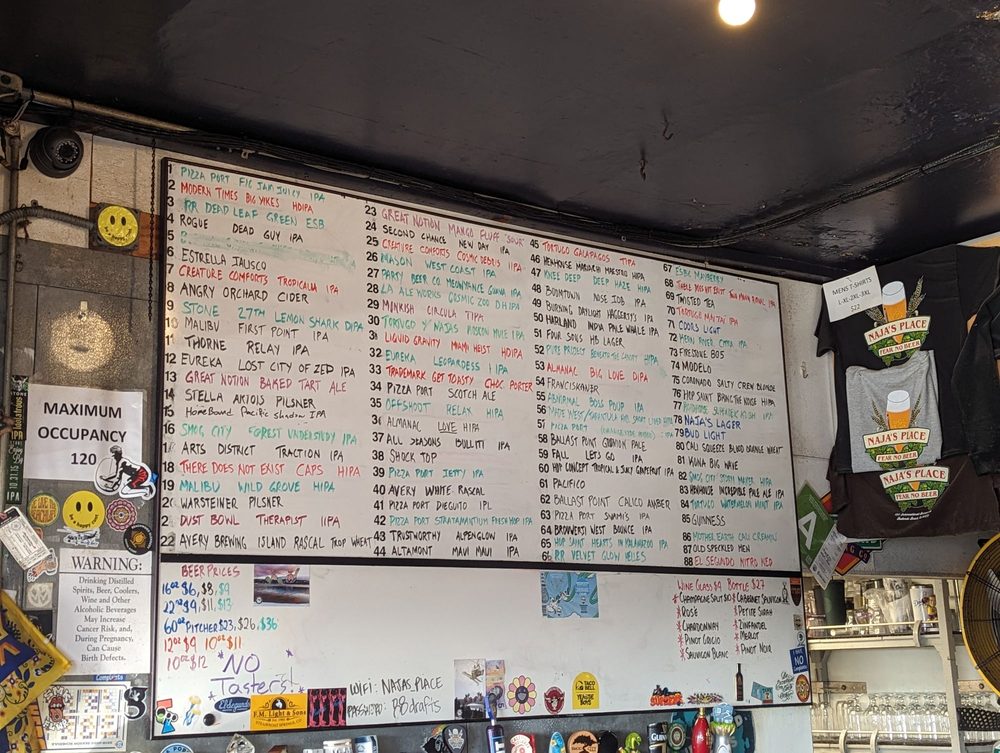 1 PIZZA PORT FIG JAM JUICY IPA
2 MODERN TIMES BIG YIKES HDIPA
3 RR DEAD LEAF GREEN ESB
4 ROGUE DEAD GUY IPA
5
6 ESTRELLA JALISCO
7 CREATURE COMFORTS TROPICALIA IPA
8 ANGRY ORCHARD CIDER
9 STONE 27TH LEMON SHARK DIPA
10 MALIBU FIRST POINT IPA
THORNE RELAY IPA
12 EUREKA LOST CITY OF ZED IPA
13 GREAT NOTION BAKED TART ALE
14 STELLA ARTOIS PILSNER
15 HOMEBOUND PACIFIC SHADOW IPA
16 SMOG CITY FOREST UNDERSTUDY IPA
ARTS DISTRICT TRACTION IPA
18 THERE DOES NOT EXIST CAPS HIPA
19 MALIBU WILD GROVE HIPA
WARSTEINER PILSNER
DUST BOWL THERAPIST IIPA
22 AVERY BREWING ISLAND RASCAL TROP WHEAT
23 GREAT NOTION MANGO FLUFF "SOUR"
24 SECOND CHANCE NEW DAY IPA
25 CREATURE COMFORTS COSMIC DEBRIS IIPA
26 MASON WEST COAST IPA
27 PARTY BEER CO.
28 LA ALE WORKS COSMIC ZOO DHIPA
29 MINKISH CIRCULA TIPA
30 TORTUGO Y NAJAS POISON MULE IPA
3 LIQUID GRAVITY MIAMI HEIST HDIPA
32 EUREKA LEOPARDESS IPA
33 TRADEMARK GET TOASTY CHOC PORTER
34 PIZZA PORT SCOTCH ALE
35 OFFSHOOT RELAX HIPA
36 ALMANAC LOVE HIPA
37 ALL SEASONS BULLITT IPA
38 SHOCK TOP
39 PIZZA PORT JETTY IPA
40 AVERY WHITE RASCAL
41 PIZZA PORT DIEGUITO IPL
42 PIZZA PORT STRATAMANTIUM FRESH HOP IPA
43 TRUSTWORTHY ALPENGLOW IPA
44 ALTAMONT MAUI MAUI IPA
45 TORTUGO GALAPAGOS TIPA
46 HENHOUSE MARIACHI MAESTRO HIPA
47 KNEE DEEP DEEP HAZE HIPA
48 BOOMTOWN NOSE JOB IPA
49 BURNING DAYLIGHT HAGGERTY'S IPA
50 HARLAND INDIA PALE WHALE IPA
51 FOUR SONS HB LAGER
52 PURE PROJECT BENEATH THE CANOPY HIPA
53 ALMANAC BIG LOVE DIPA
54 FRANZISKANER
55 ABNORMAL BOSS POUR IPA
56
57 PIZZA PORT
58 BALLAST POINT CALIFORNIA PALE
59 FALL LET'S GO IPA
60 HOP CONCEPT TROPICAL & JUICY GRAPEFRUIT IPA
61 PACIFICO
62 BALLAST POINT CALICO AMBER
63 PIZZA PORT SWAMI'S IPA
64 BROUWERIJ WEST BOUNCE IPA
65 HOP SAINT HEARTS IN KALAMAZOO IPA
66 RR VELVET GLOW HELLES
67 MAYBERRY
68 TABLE DOES NOT EXIST IPA
69 TWISTED TEA
70 TORTUGO MAI TAI IPA
71 COORS LIGHT
72 KERN RIVER CITRA IPA
73 FIRESTONE 805
74 MODELO
75 CORONADO SALTY CREW BLONDE
76 HOP SAINT BRING THE NOICE HIPA
77 IPA
78 NAJA'S LAGER
79 BUD LIGHT
80 CALI SQUEEZE BLOOD ORANGE WHEAT
81 KONA BIG WAVE
82 SMOG CITY HIPA
83 HENHOUSE INCREDIBLE PALE ALE IPA
84 TORTUGO WATERMELON MINT IPA
85 GUINNESS
86 MOTHER EARTH CALI CREAMIN
87 OLD SPECKLED HEN
88 EL SEGUNDO NITRO RED
BEER PRICES
16oz $6, $8, $9
12oz $9, $11, $13
60oz PITCHER $23, $26, $36
12oz $9 10oz $11
10oz $12
NO
Tasters!
WIFI: NAJAS_PLACE
PASSWORD: 88drafts
WINE GLASS $9 BOTTLE $27
CHAMPAGNE SPLIT $10
ROSE
CHARDONNAY
PINOT GRIGIO
SAUVIGNON BLANC
CABERNET SAUVIGNON
PETITE SIRAH
ZINFANDEL
MERLOT
PINOT NOIR
MAXIMUM
OCCUPANCY
120
WARNING:
Drinking Distilled
Spirits, Beer, Coolers,
Wine and Other
Alcoholic Beverages
May Increase
Cancer Risk, and,
During Pregnancy,
Can Cause
Birth Defects.
F.M. Light & Sons
TACO BELL
MENS T-SHIRTS
L-XL-2XL-3XL
$22
NAJA'S PLACE
FEAR NO BEER
NAJA'S PLACE
FEAR NO BEER
NAJA'S PLACE
FEAR NO BEER